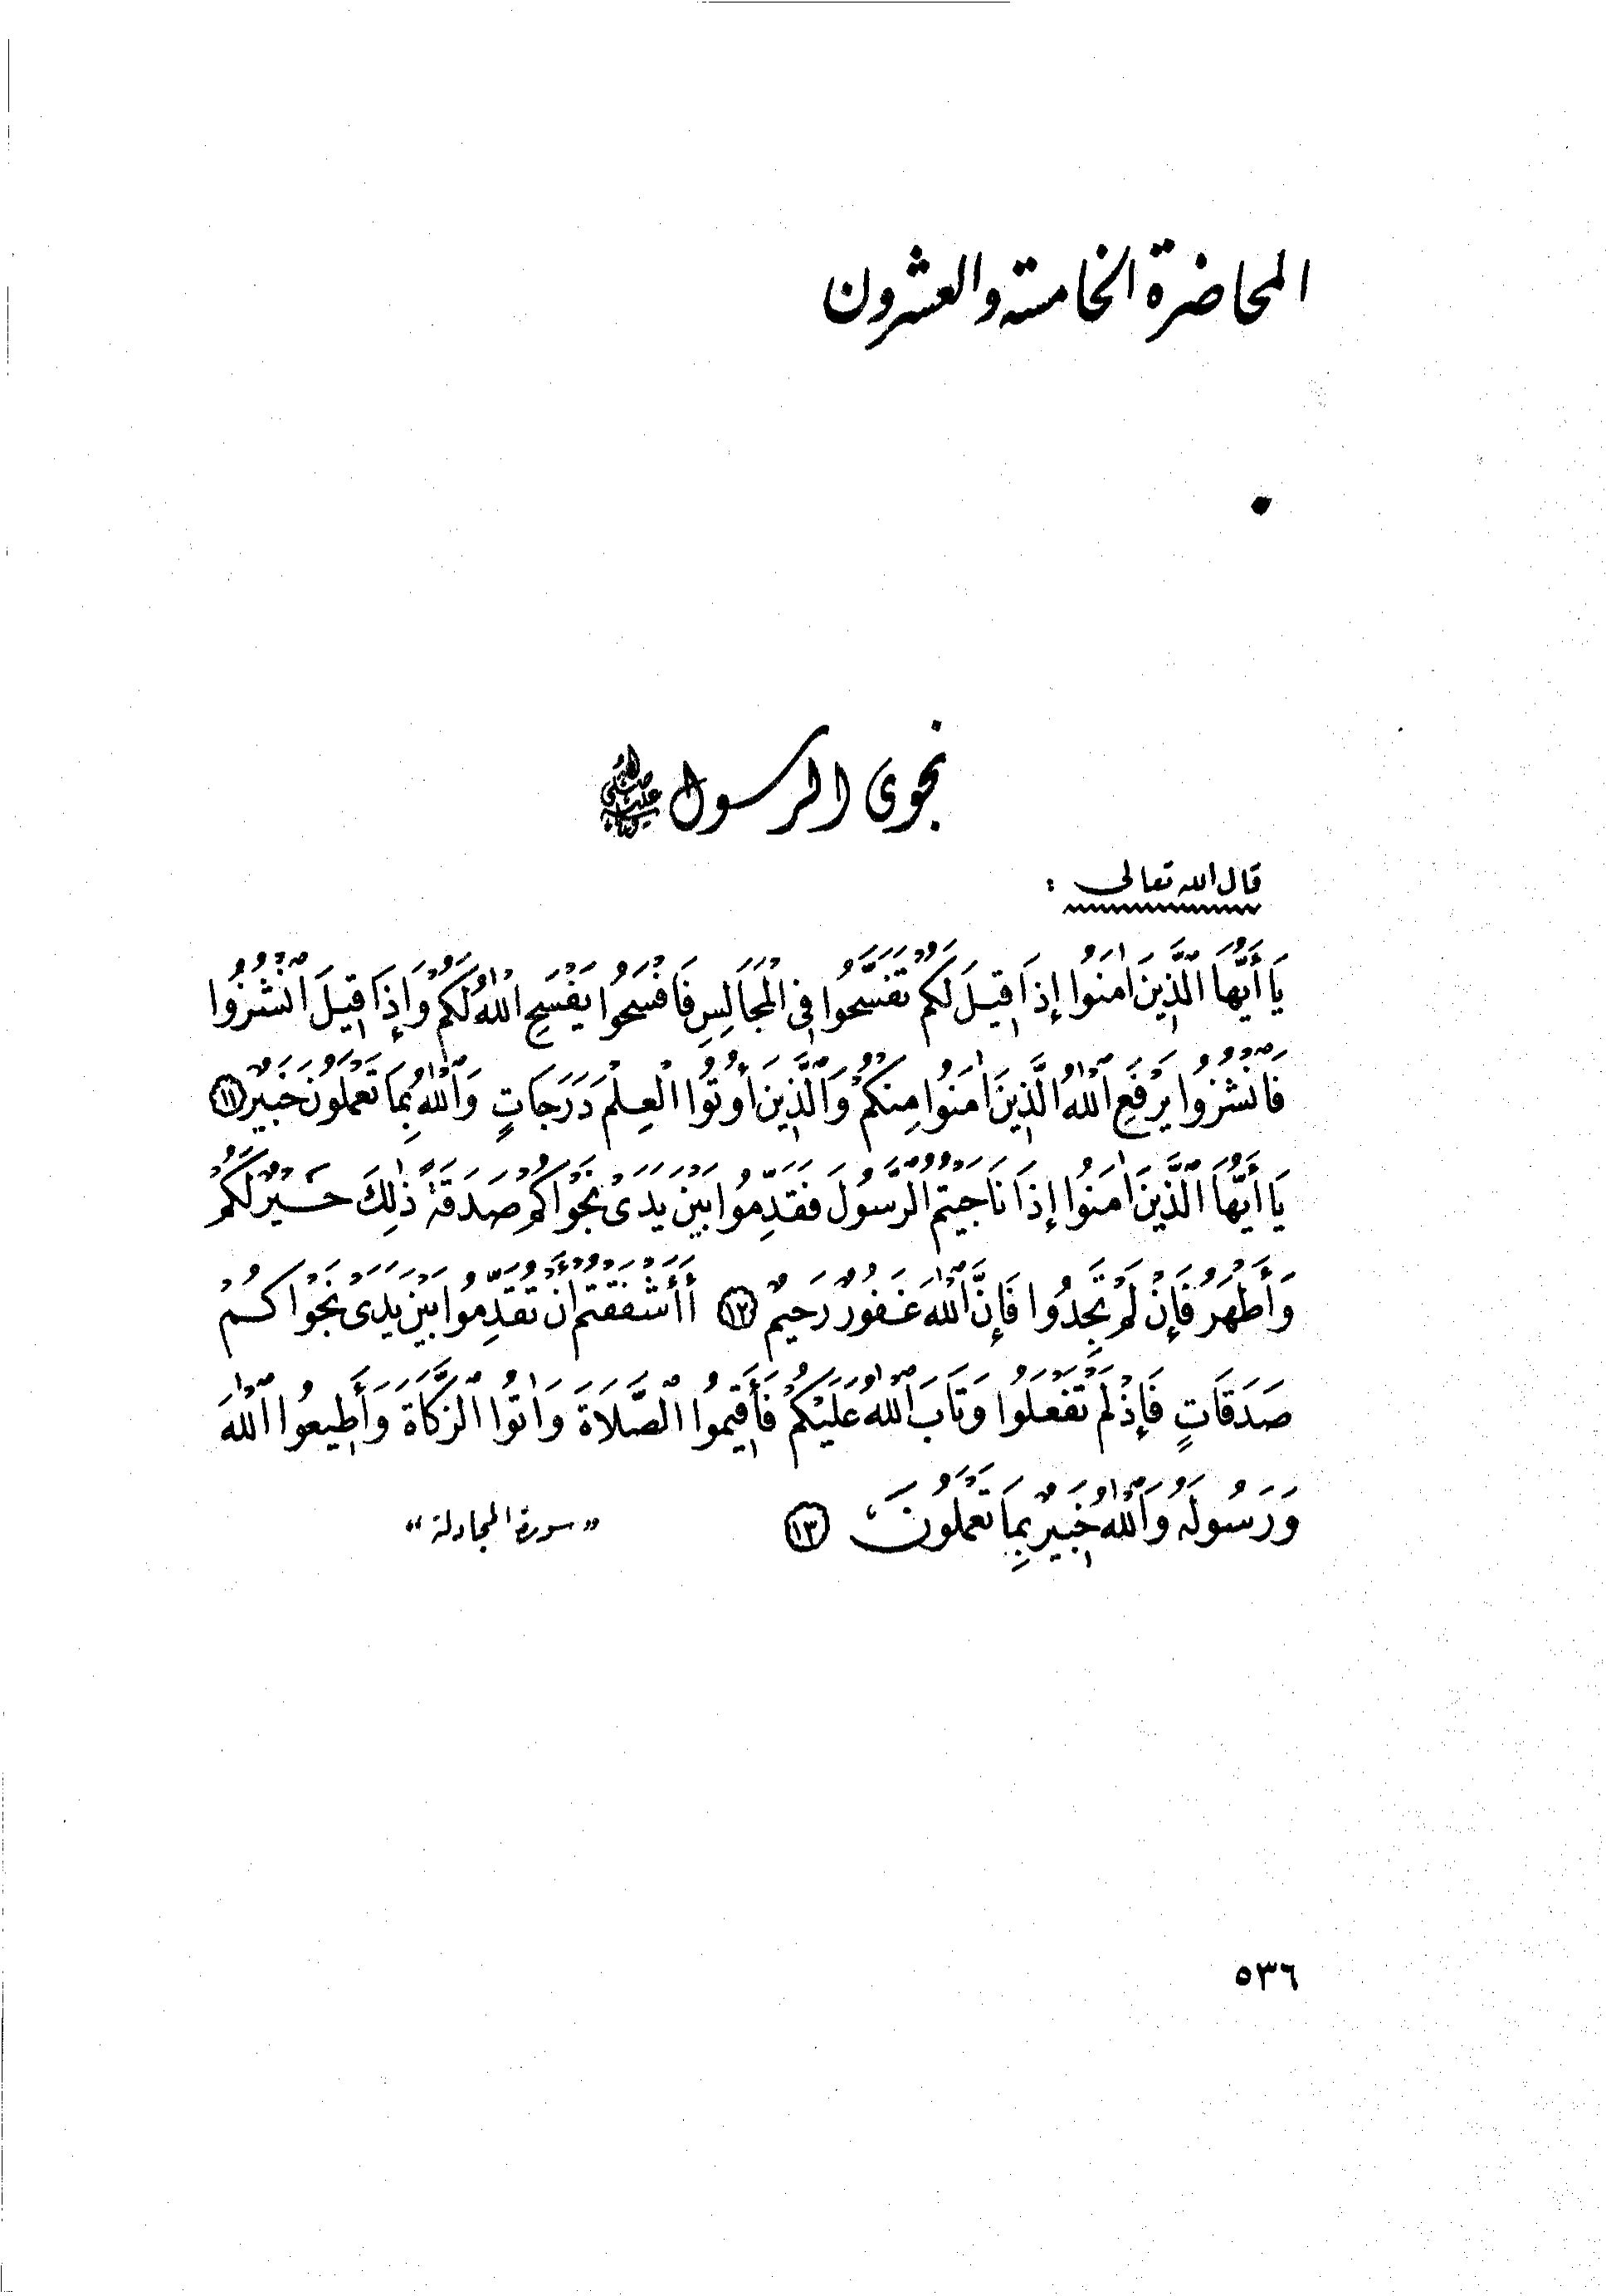 المحاضرة الخامسة والعشرون
نجوى الرسول ﷺ
قال الله تعالى :
يَا أَيُّهَا الَّذِينَ اٰمَنُوا إِذَا قِيلَ لَكُمْ تَفَسَّحُوا فِي الْمَجَالِسِ فَافْسَحُوا يَفْسَحِ اللّٰهُ لَكُمْ وَإِذَا قِيلَ انْشُزُوا
فَانْشُزُوا يَرْفَعِ اللّٰهُ الَّذِينَ اٰمَنُوا مِنكُمْ وَالَّذِينَ أُوتُوا الْعِلْمَ دَرَجَاتٍ وَاللّٰهُ بِمَا تَعْمَلُونَ خَبِيرٌ ١١
يَا أَيُّهَا الَّذِينَ اٰمَنُوا إِذَا نَاجَيْتُمُ الرَّسُولَ فَقَدِّمُوا بَيْنَ يَدَىْ نَجْوَاكُمْ صَدَقَةً ذٰلِكَ خَيْرٌ لَكُمْ
وَأَطْهَرُ فَإِنْ لَمْ تَجِدُوا فَإِنَّ اللّٰهَ غَفُورٌ رَحِيمٌ ١٢ أَأَشْفَقْتُمْ أَنْ تُقَدِّمُوا بَيْنَ يَدَىْ نَجْوَاكُمْ
صَدَقَاتٍ فَإِذْ لَمْ تَفْعَلُوا وَتَابَ اللّٰهُ عَلَيْكُمْ فَأَقِيمُوا الصَّلَاةَ وَاٰتُوا الزَّكَاةَ وَأَطِيعُوا اللّٰهَ
وَرَسُولَهُ وَاللّٰهُ خَبِيرٌ بِمَا تَعْمَلُونَ ١٣ « سورة المجادلة »
٥٣٦